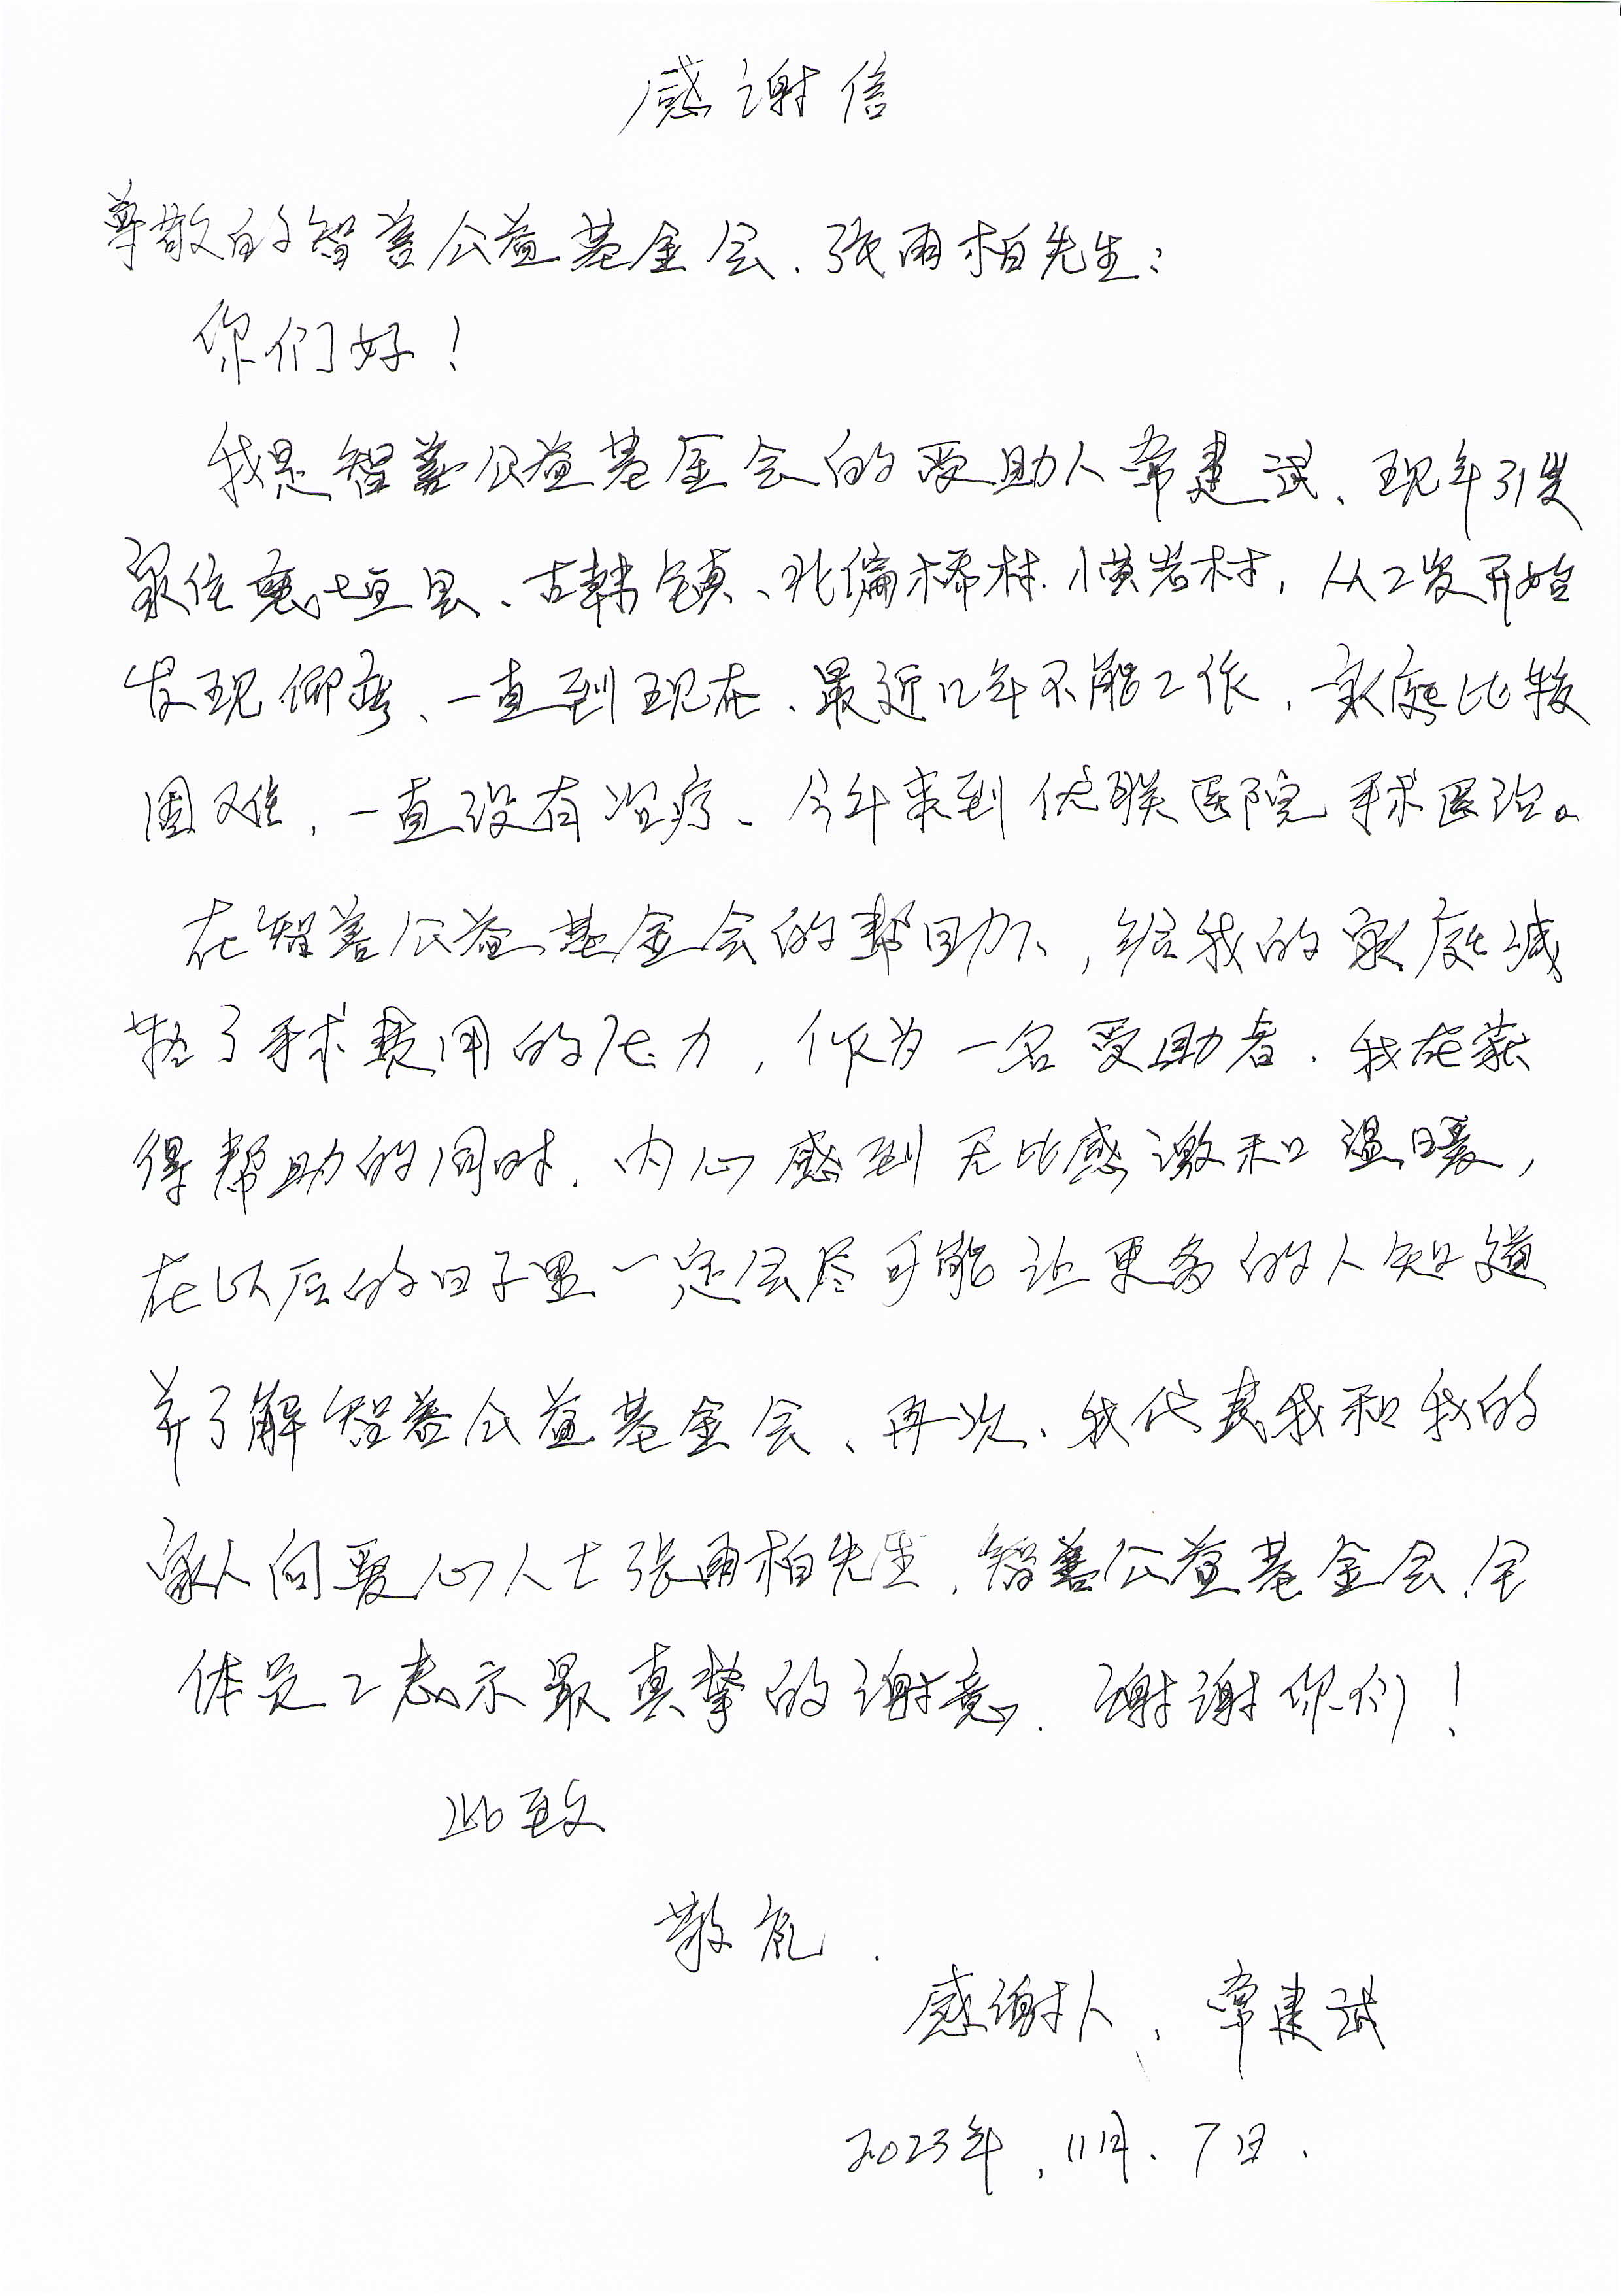 感谢信
尊敬的智善公益基金会、张雨柏先生：
你们好！
我是智善公益基金会的受助人常建斌、现年31岁
家住襄垣县、古韩镇、北偏桥村.横岩村，从2岁开始
发现 、一直到现在、最近几年不能工作，家庭比较
困难，一直没有治疗、今年来到优联医院手术医治。
在智善公益基金会的帮助下，给我的家庭减
轻了手术费用的压力，作为一名受助者.我在获
得帮助的同时.内心感到无比感激和温暖，
在以后的日子里一定会尽可能让更多的人知道
并了解智善公益基金会、再次、我代表我和我的
家人向爱心人士张雨柏先生，智善公益基金会，全
体员工表示最真挚的谢意. 谢谢你们！
此致
敬礼.
感谢人、常建斌
2023年.11月.7日.